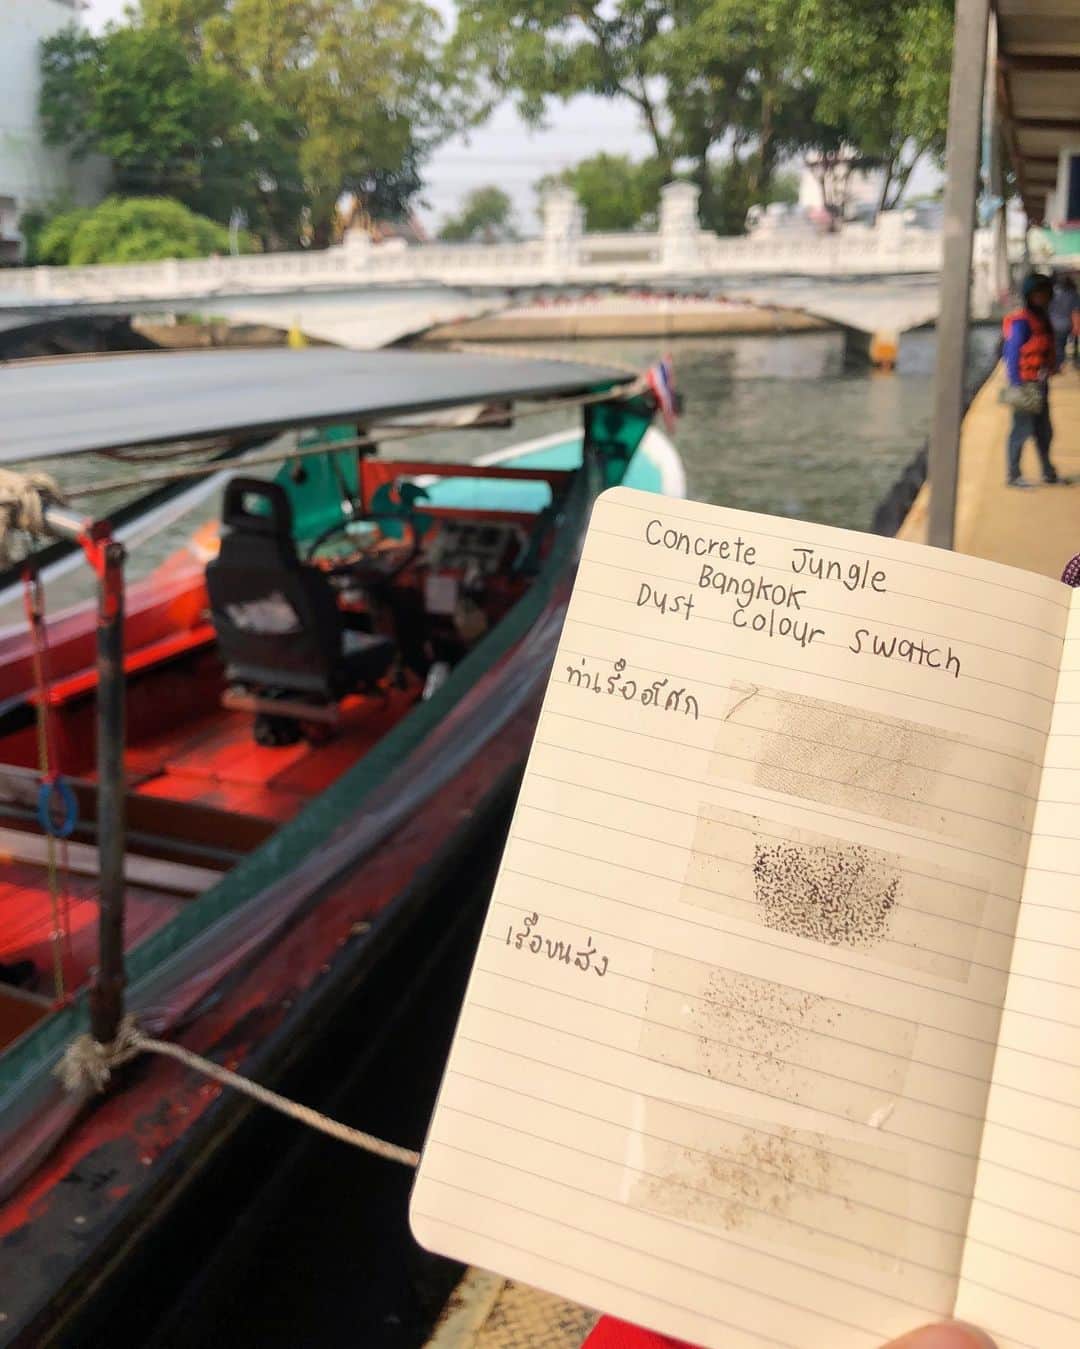 Concrete Jungle
Bangkok
Dust Colour Swatch
ท่าเรืออโศก
เรือขนส่ง